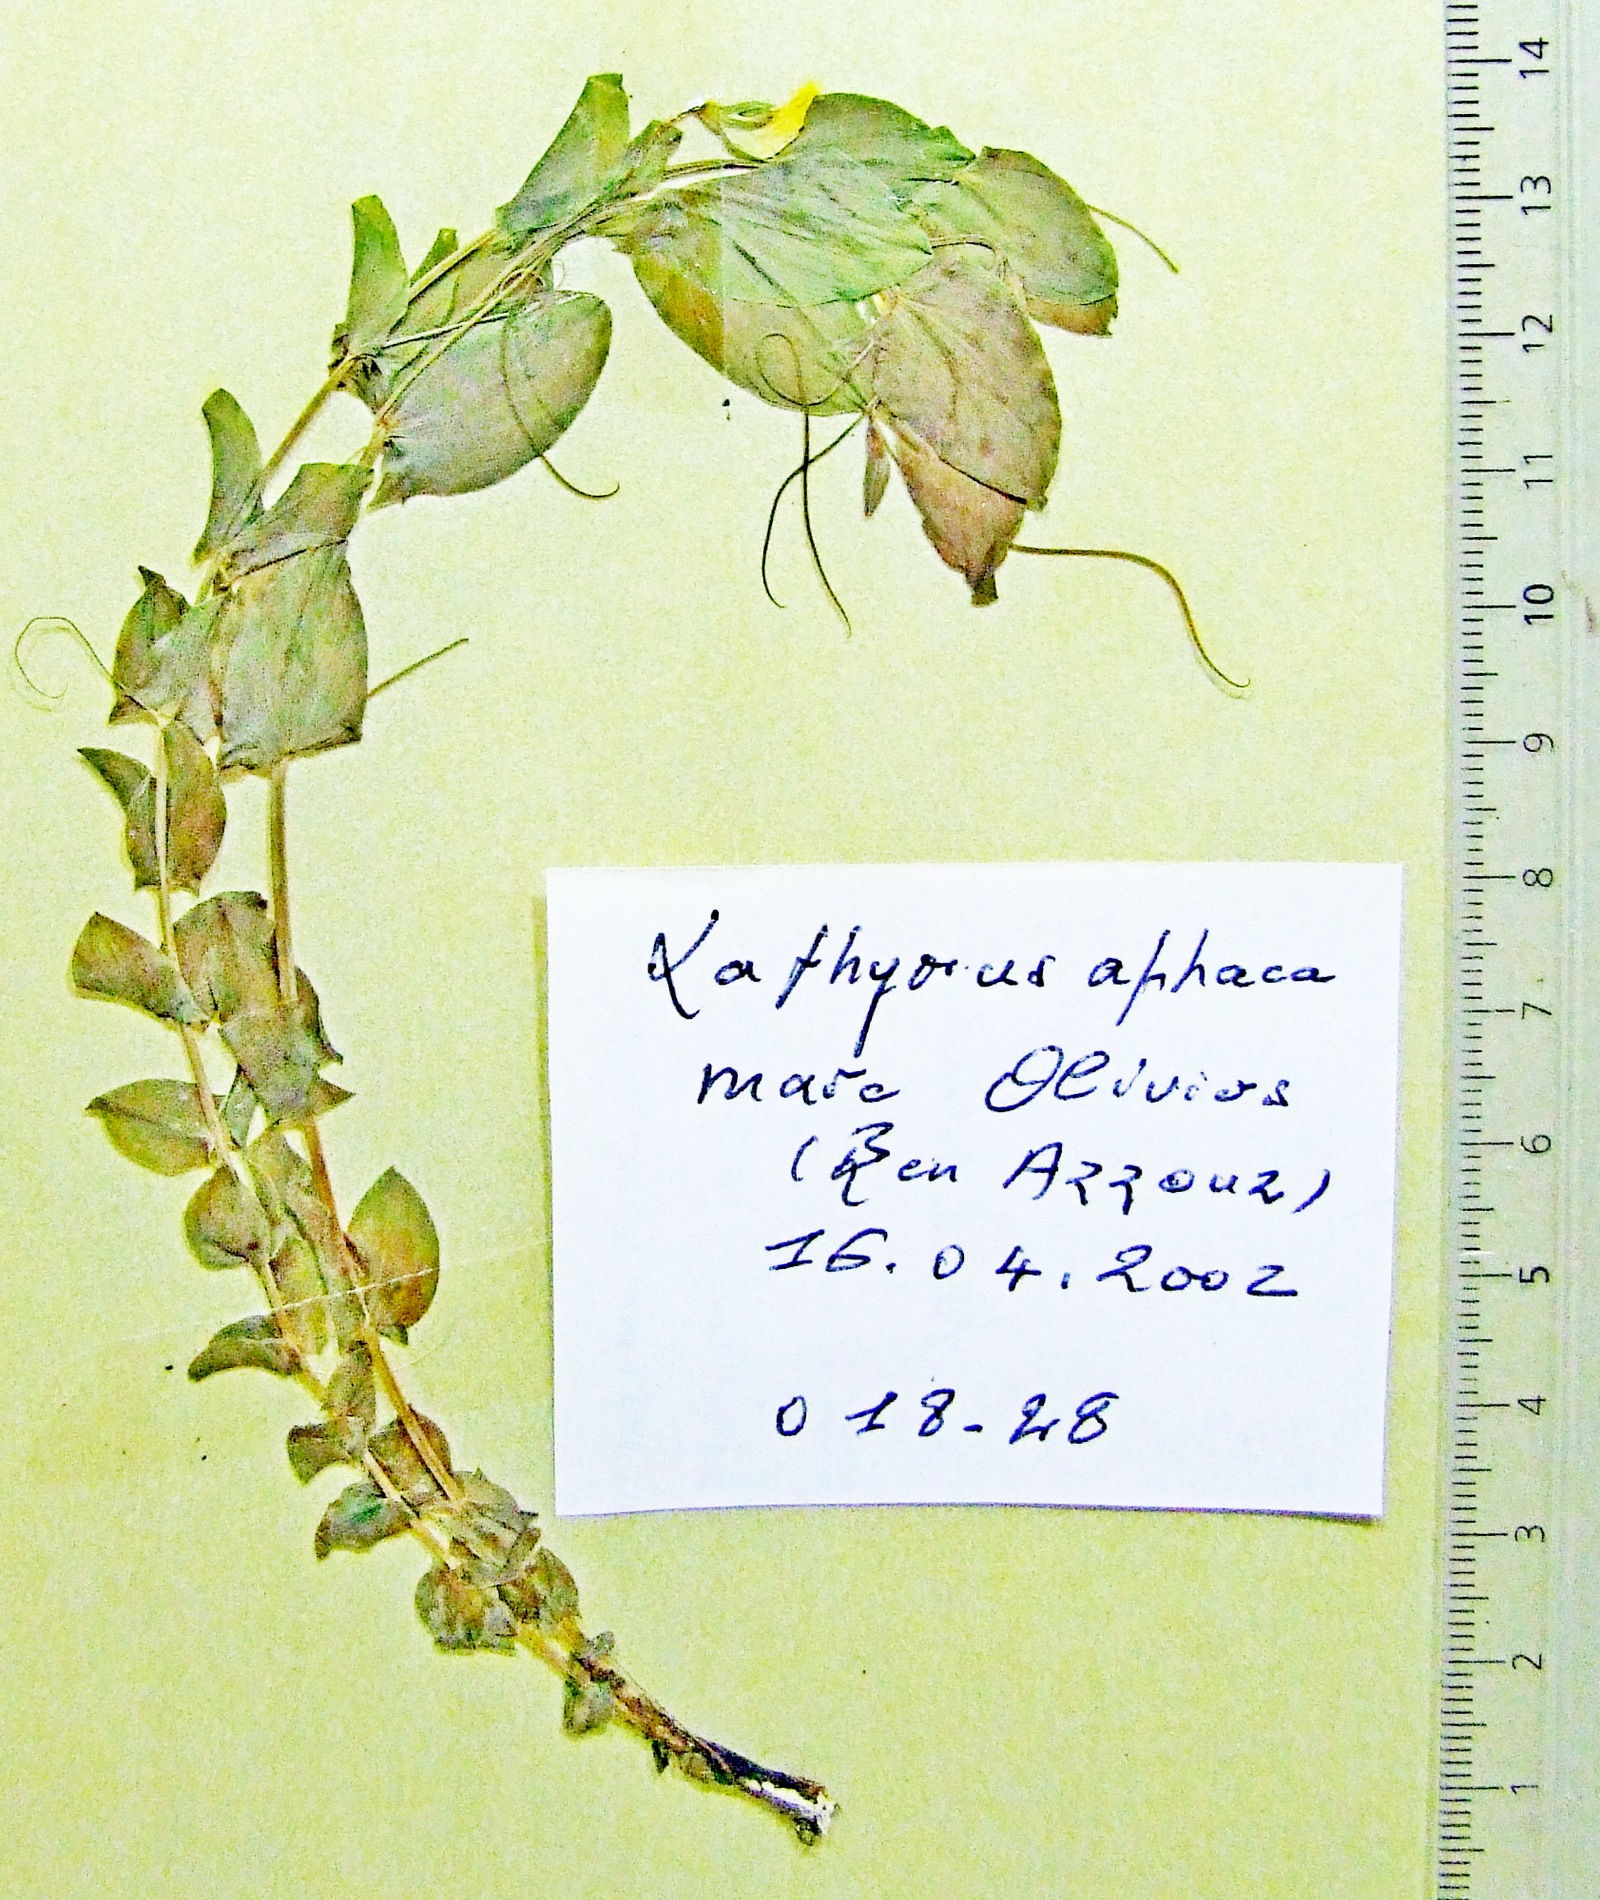 Lathyrus aphaca
marc Oliviers
(Ben Azzouz)
16.04.2002
018-28
14
13
12
11
10
9
8
7
6
5
4
3
2
1